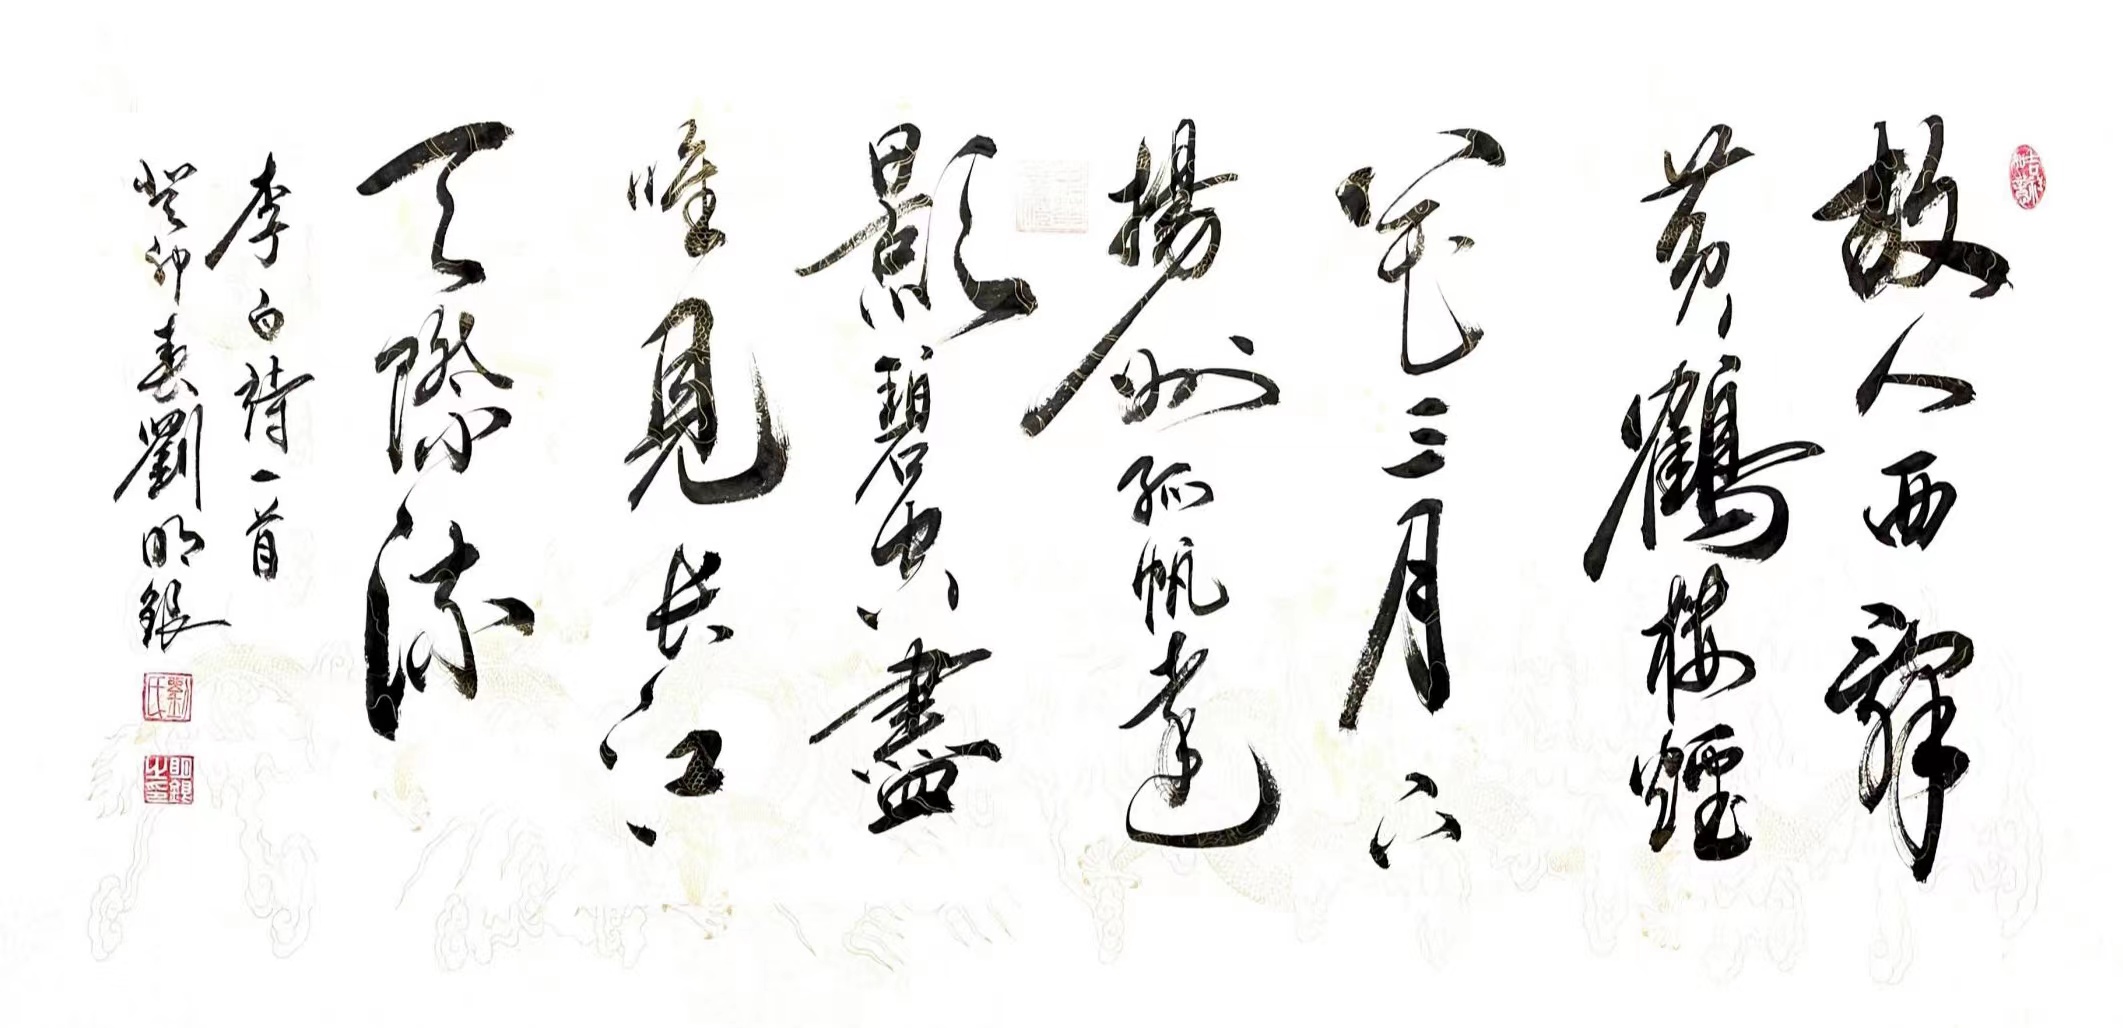 故人西辭
黄鶴樓煙
花三月下
揚州孤帆遠
影碧空盡
唯見长江
天際流
李白詩一首
癸卯春劉明銀
劉氏
明銀之印